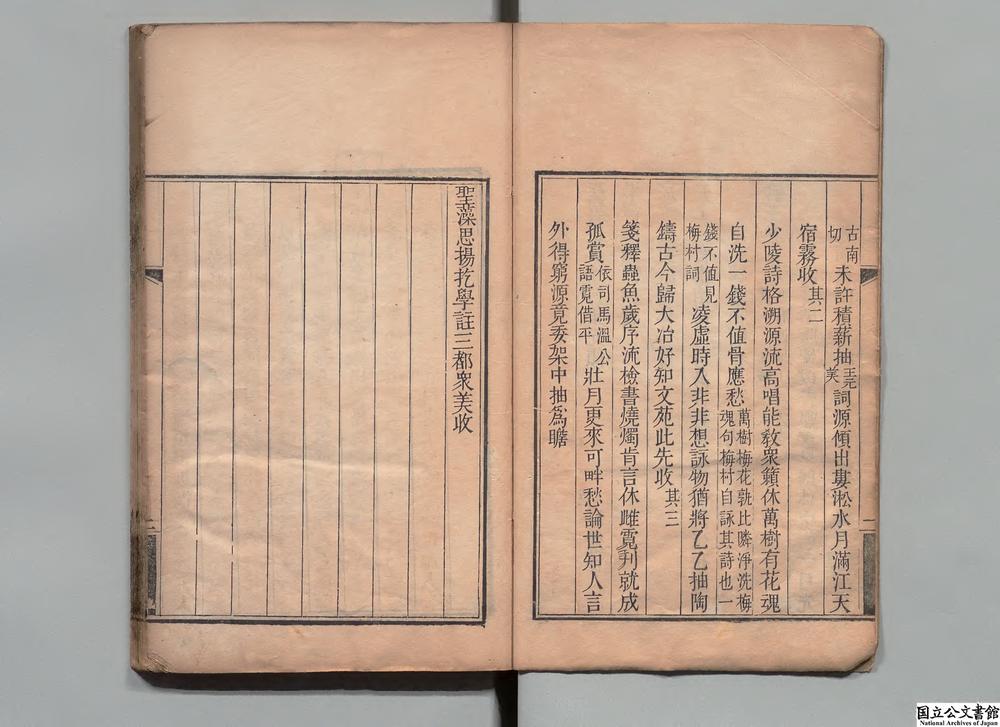 古南切未許積薪抽王元美詞源傾出婁淞水月滿江天
宿霧收其二
少陵詩格溯源流高唱能教衆籟休萬樹有花魂
自洗一錢不值骨應愁萬樹梅花孰比隣淨洗梅魂句梅村自詠其詩也一
錢不值見梅村詞凌虛時入非非想詠物猶將乙乙抽陶
鑄古今歸大冶好知文苑此先收其三
箋釋蟲魚歲序流檢書燒燭肯言休雌霓判就成
孤賞依司馬溫公語霓借平壯月更來可畔愁論世知人言
外得窮源竟委架中抽爲瞻
聖藻思揚扢學註三都衆美收
二
国立公文書館
National Archives of Japan